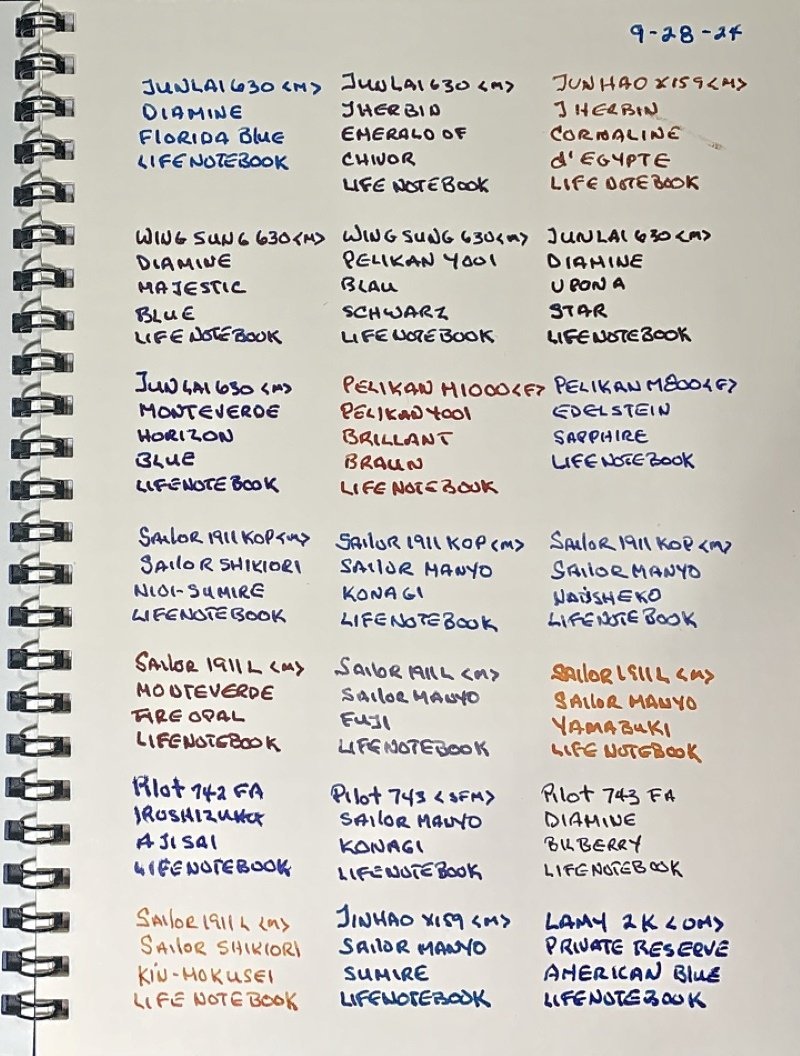 9-28-24
JUNLAI 630 <M>
DIAMINE
FLORIDA BLUE
LIFE NOTEBOOK
JUNLAI 630 <M>
JHERBIN
EMERALD OF
CHIVOR
LIFE NOTEBOOK
JUNHAO X159 <M>
J HERBIN
CORNALINE
d'EGYPTE
LIFE NOTEBOOK
WING SUNG 630 <M>
DIAMINE
MAJESTIC
BLUE
LIFE NOTEBOOK
WING SUNG 630 <M>
PELIKAN 4001
BLAU
SCHWARZ
LIFE NOTEBOOK
JUNLAI 630 <M>
DIAMINE
UPON A
STAR
LIFE NOTEBOOK
JUNLAI 630 <M>
MONTEVERDE
HORIZON
BLUE
LIFE NOTEBOOK
PELIKAN M1000 <F>
PELIKAN 4001
BRILLANT
BRAUN
LIFE NOTEBOOK
PELIKAN M800 <F>
EDELSTEIN
SAPPHIRE
LIFE NOTEBOOK
SAILOR 1911 KOP <M>
SAILOR SHIKIORI
NIOI-SUMIRE
LIFE NOTEBOOK
SAILOR 1911 KOP <M>
SAILOR MANYO
KONAGI
LIFE NOTEBOOK
SAILOR 1911 KOP <M>
SAILOR MANYO
LIFE NOTEBOOK
SAILOR 1911 L <M>
MONTEVERDE
FIRE OPAL
LIFE NOTEBOOK
SAILOR 1911 L <M>
SAILOR MANYO
FUJI
LIFE NOTEBOOK
SAILOR 1911 L <M>
SAILOR MANYO
YAMABUKI
LIFE NOTEBOOK
PILOT 742 FA
IROSHIZUKU
AJISAI
LIFE NOTEBOOK
PILOT 743 <SFM>
SAILOR MANYO
KONAGI
LIFE NOTEBOOK
PILOT 743 FA
DIAMINE
BILBERRY
LIFE NOTEBOOK
SAILOR 1911 L <M>
SAILOR SHIKIORI
KIN-MOKUSEI
LIFE NOTEBOOK
JINHAO X159 <M>
SAILOR MANYO
SUMIRE
LIFE NOTEBOOK
LAMY 2K <OM>
PRIVATE RESERVE
AMERICAN BLUE
LIFE NOTEBOOK